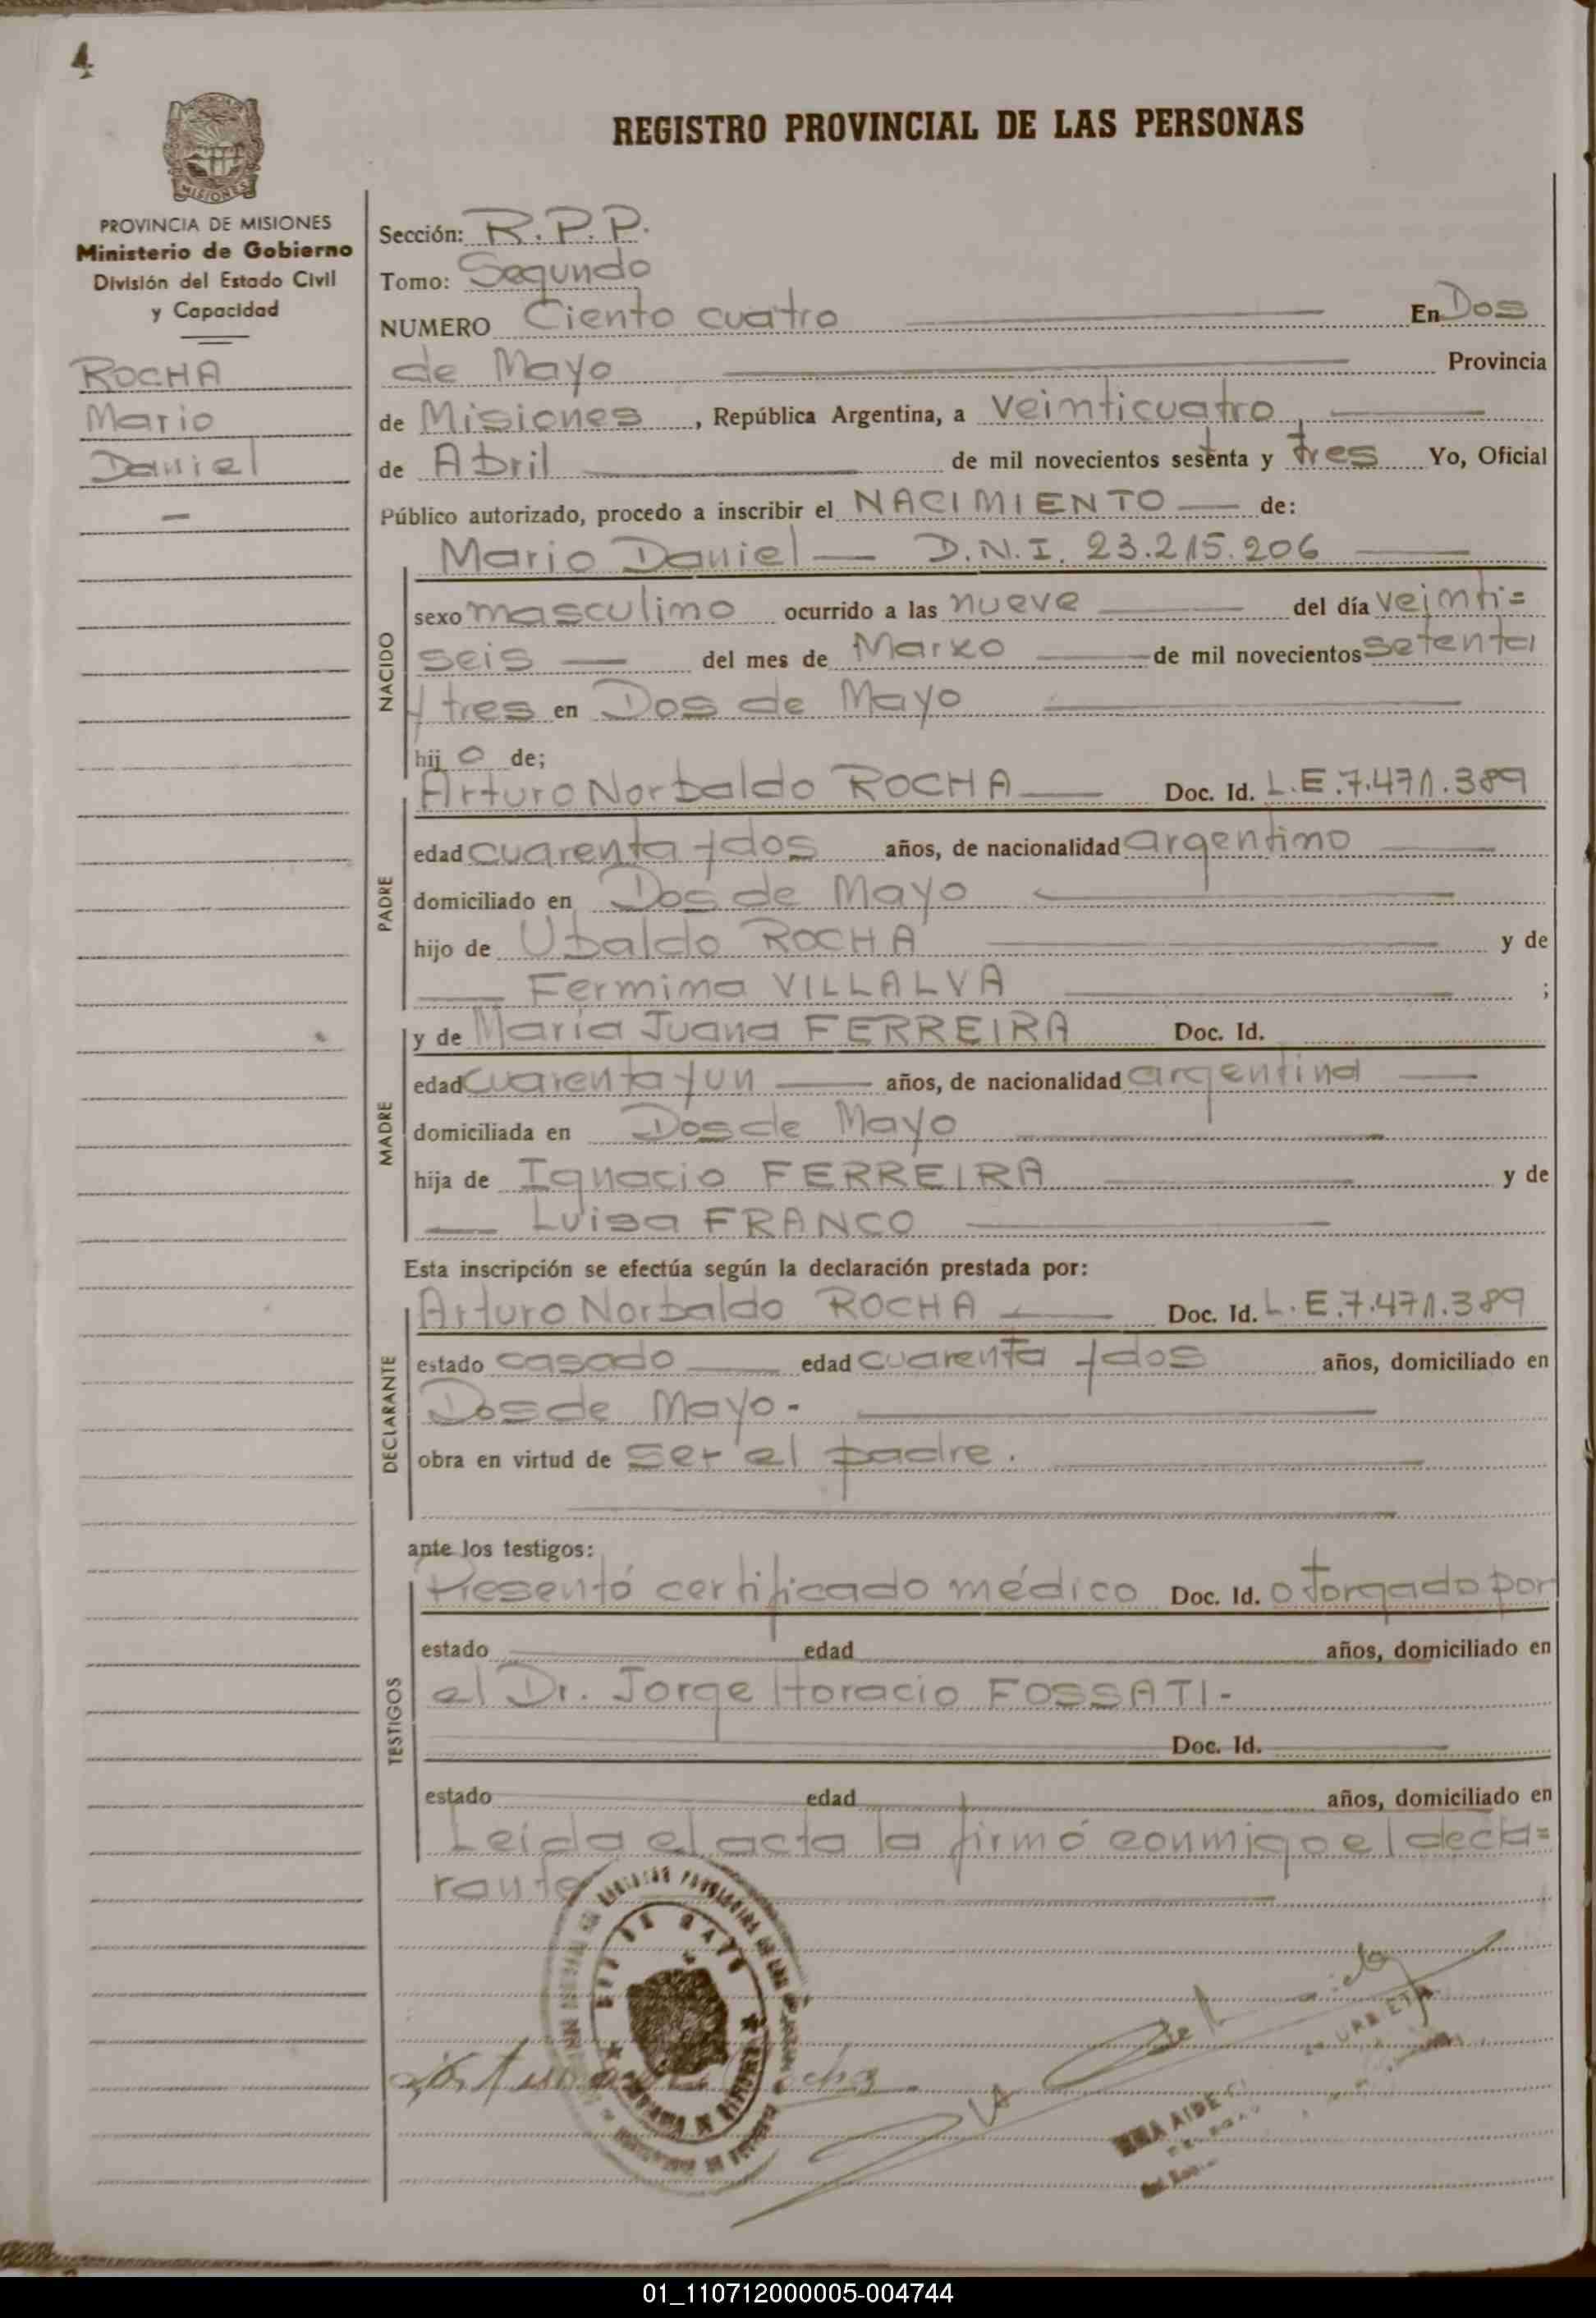 4
REGISTRO PROVINCIAL DE LAS PERSONAS
MISIONES
PROVINCIA DE MISIONES
Ministerio de Gobierno
División del Estado Civil
y Capacidad
ROCHA
Mario
Daniel
Sección: R.P.P.
Tomo: Segundo
NUMERO Ciento cuatro En Dos
de Mayo Provincia
de Misiones, República Argentina, a veinticuatro
de Abril de mil novecientos sesenta y tres Yo, Oficial
Público autorizado, procedo a inscribir el NACIMIENTO de:
Mario Daniel — D.N.I. 23.215.206
NACIDO
sexo masculino ocurrido a las nueve del día veinti=
seis del mes de Marzo de mil novecientos setenta
y tres en Dos de Mayo
hijo de;
PADRE
Arturo Norbaldo ROCHA Doc. Id. L.E.7.471.389
edad cuarenta y dos años, de nacionalidad argentino
domiciliado en Dos de Mayo
hijo de Ubaldo ROCHA y de
Fermina VILLALVA ;
MADRE
y de María Juana FERREIRA Doc. Id.
edad cuarenta y un años, de nacionalidad argentina
domiciliada en Dos de Mayo
hija de Ignacio FERREIRA y de
Luisa FRANCO
Esta inscripción se efectúa según la declaración prestada por:
DECLARANTE
Arturo Norbaldo ROCHA Doc. Id. L.E.7.471.389
estado casado edad cuarenta y dos años, domiciliado en
Dos de Mayo.-
obra en virtud de ser el padre.
ante los testigos:
TESTIGOS
Presentó certificado médico Doc. Id. otorgado por
estado edad años, domiciliado en
el Dr. Jorge Horacio FOSSATI-
Doc. Id.
estado edad años, domiciliado en
Leída el acta la firmó conmigo el decla=
rante
DOS DE MAYO
01_110712000005-004744